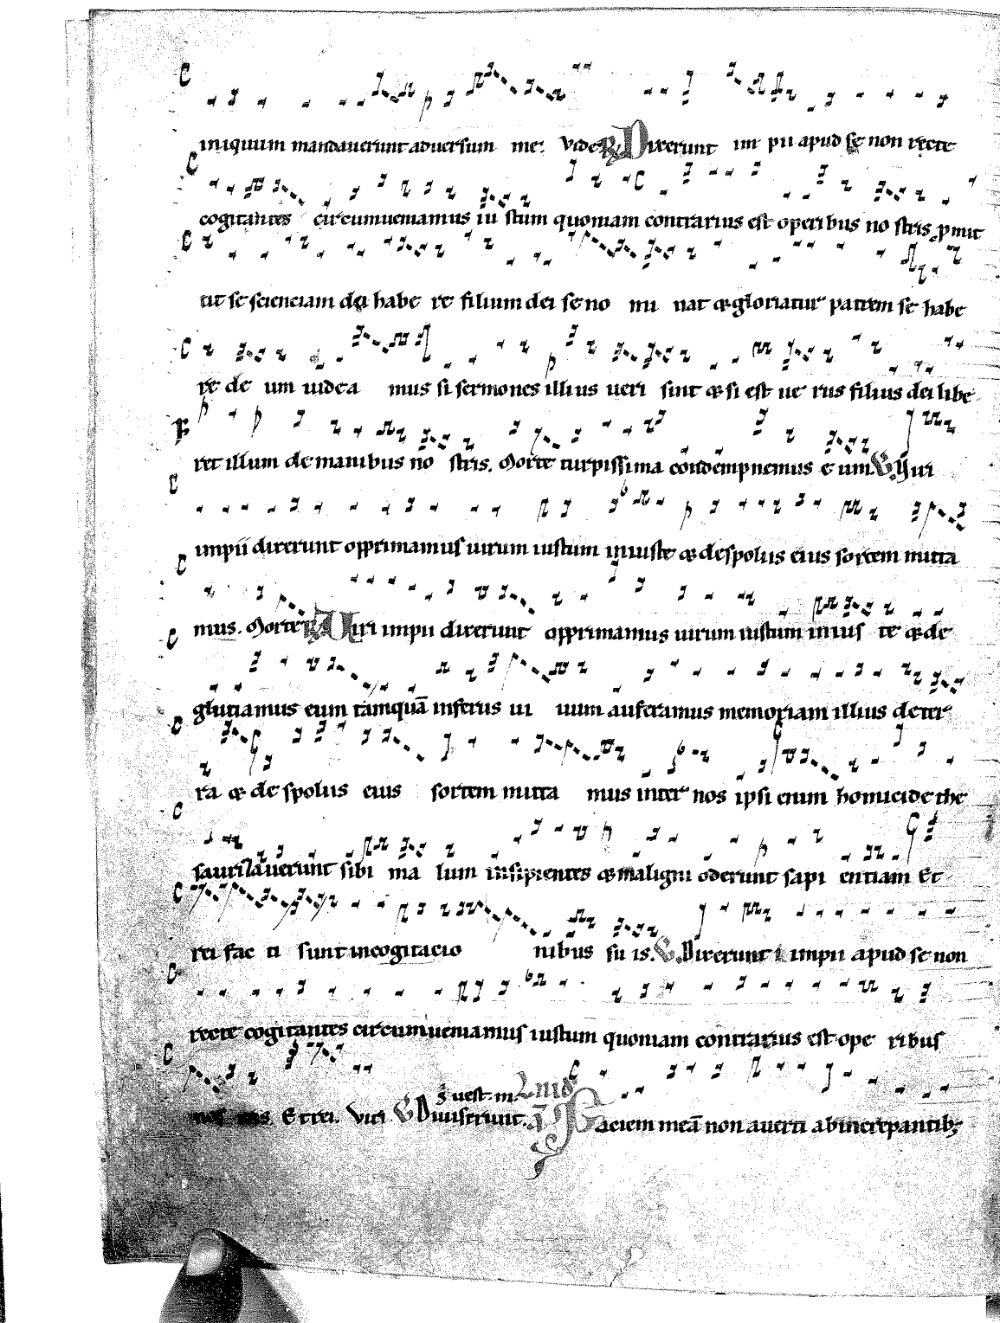 iniquum mandauerunt aduersum me. Vide R Dixerunt im pii apud se non recte
cogitantes circumueniamus iu stum quoniam contrarius est operibus no stris. pmit
tit se scienciam dei habe re filium dei se no mi nat & gloriatur patrem se habe
re de um uidea mus si sermones illius ueri sint & si est ue rus filius dei libe
ret illum de manibus no stris. Morte turpissima condempnemus e um. V Viri
impii dixerunt opprimamus uirum iustum iniuste & despolus eius sortem mitta
mus. Morte R Viri impii dixerunt opprimamus uirum iustum inius te & de
glutiamus eum tamquā inferus ui uum auferamus memoriam illius de ter
ra & de spolus eius sortem mitta mus inter nos ipsi enim homicide the
saurizauerunt sibi ma lum insipientes & maligni oderunt sapi entiam Et
rei fac ti sunt in cogitacio nibus su is. V Dixerunt impii apud se non
recte cogitantes circumueniamus iustum quoniam contrarius est ope ribus
nos tris. Et rei. Viri V Diuiserunt.
Faciem meā non auerti ab increpantib;